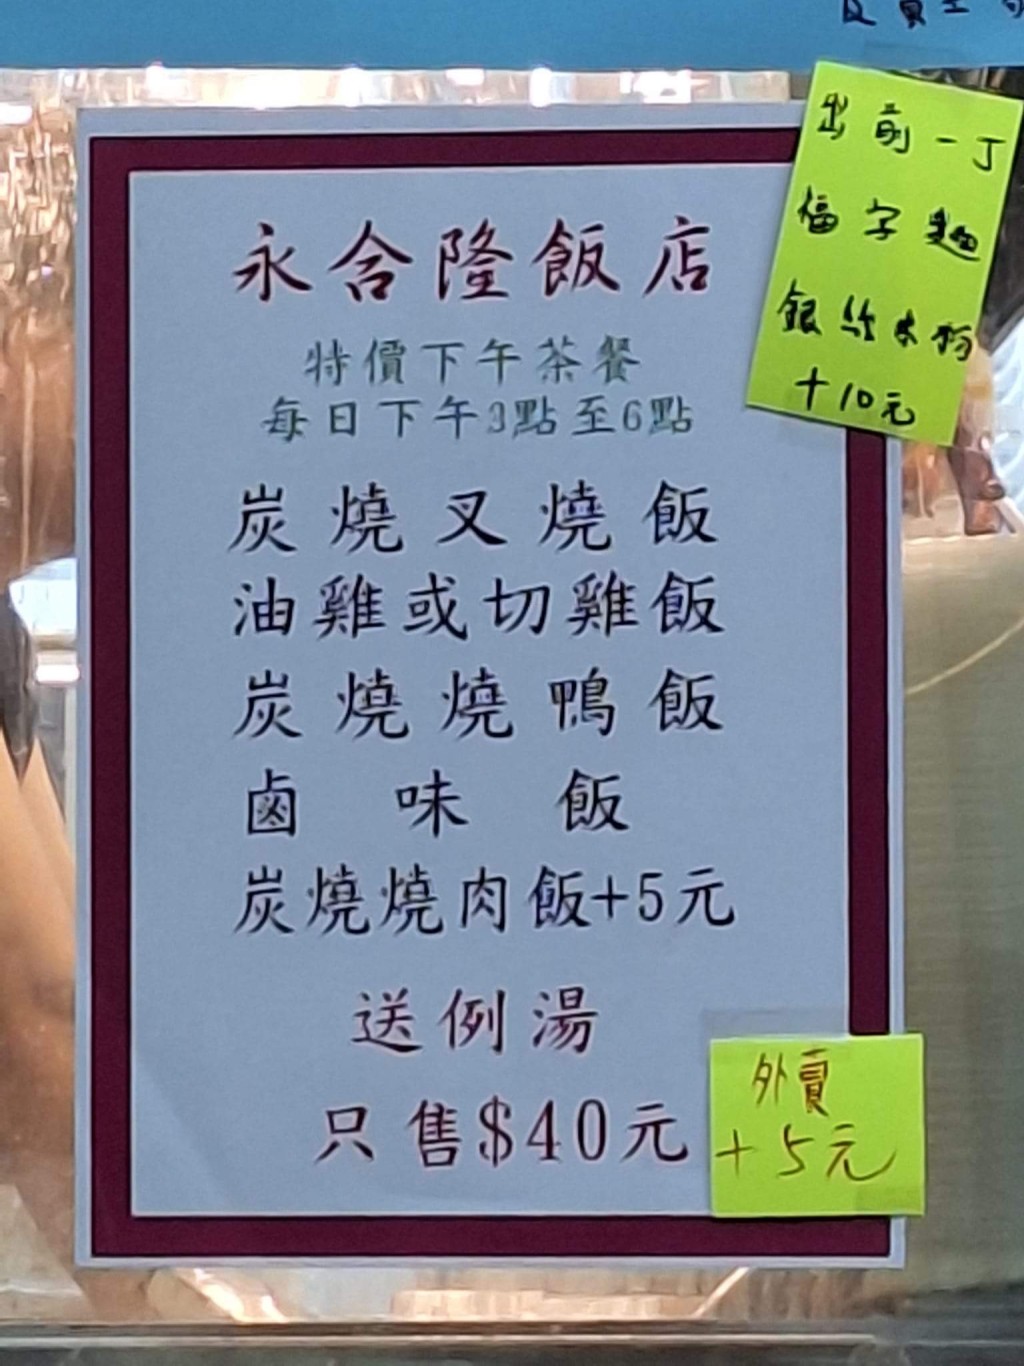 永合隆飯店
特價下午茶餐
每日下午3點至6點
炭燒叉燒飯
油雞或切雞飯
炭燒燒鴨飯
鹵味飯
炭燒燒肉飯+5元
送例湯
只售$40元
出前一丁
福字麵
銀絲米粉
+10元
外賣
+5元